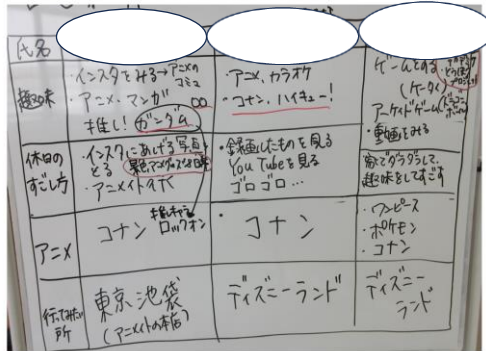 氏名
趣味
・インスタをみる→アニメの
コミュ
・アニメ、マンガ
推し！ガンダム
・アニメ、カラオケ
・コナン、ハイキュー！
ゲームをする
(ケータイ)
アーケードゲーム
・動画をみる
休日の
すごし方
・インスタにあげる写真を
とる
・アニメイトへ行く
・録画したものを見る
YouTubeを見る
ゴロゴロ…
家でダラダラして、
趣味をしてすごす
アニメ
コナン
推しキャラ
ロックオン
・コナン
・ワンピース
・ポケモン
・コナン
行ってみたい
所
東京池袋
(アニメイトの本店)
ディズニーランド
ディズニー
ランド